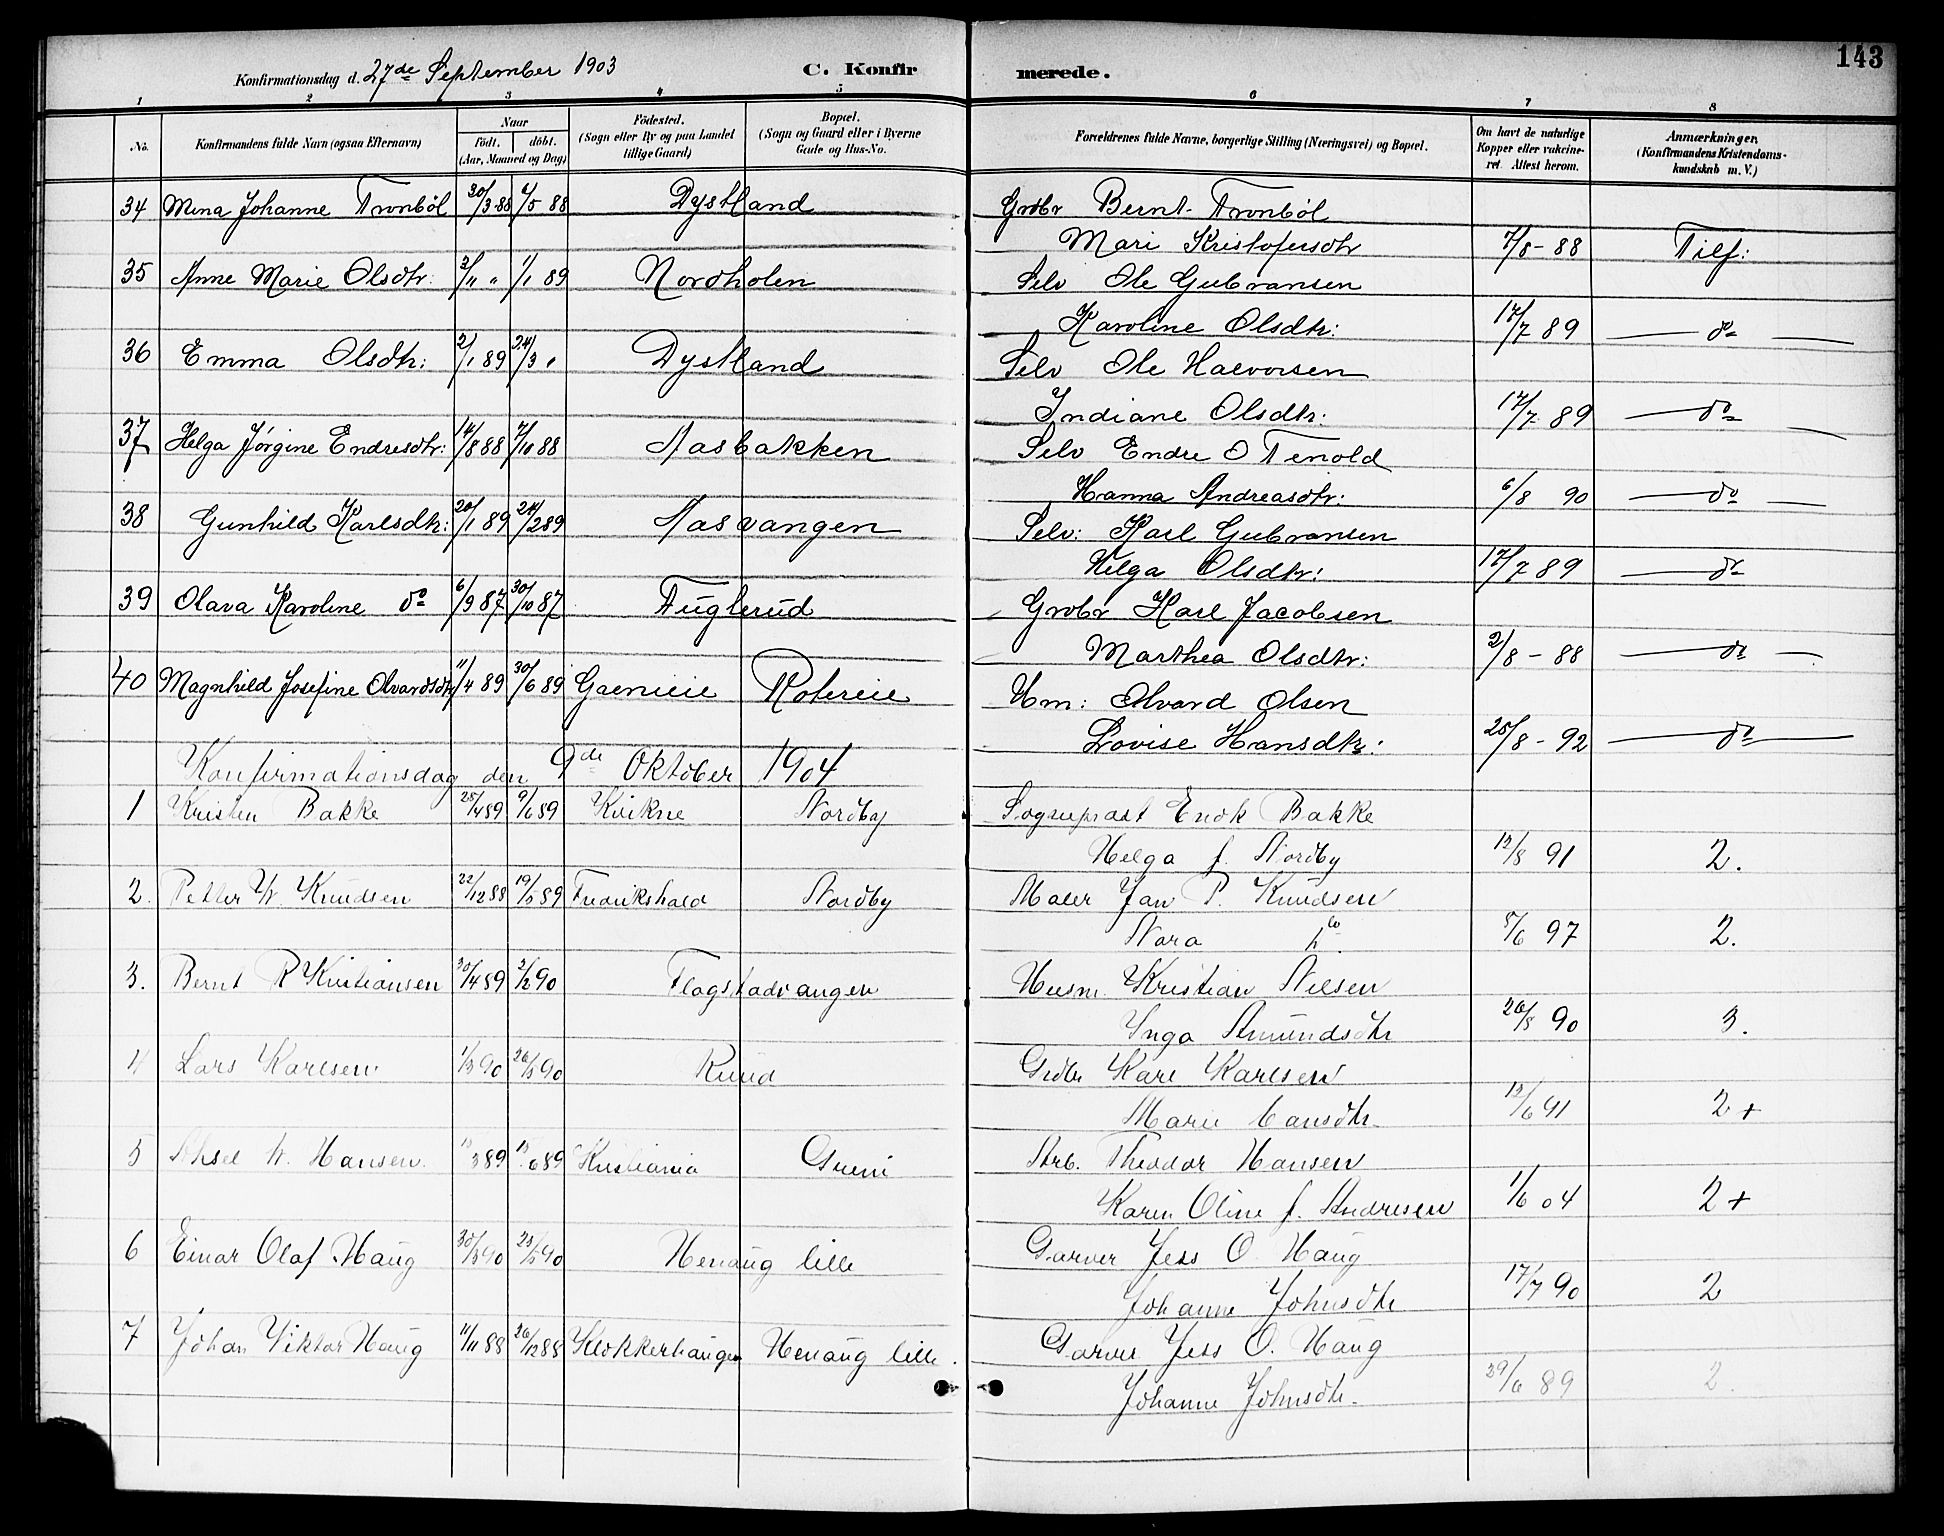 143
Konfirmationsdag d. 27de September 1903 C. Konfirmerede.
1 2 3 4 5 6 7 8
No. Konfirmandens fulde Navn (ogsaa Efternavn) Naar födt. döbt. (Aar, Maaned og Dag) Födested. (Sogn eller By og paa Landet tillige Gaard) Bopæl. (Sogn og Gaard eller i Byerne Gade og Hus-No. Forældrenes fulde Navne, borgerlige Stilling (Næringsvei) og Bopæl. Om havt de naturlige Kopper eller vakcineret Attest herom. Anmærkninger. (Konfirmandens Kristendomskundskab m. V.)
34 Mina Johanne Tronböl 30/3 88 6/5 88 Dystland Grdbr Bernt Tronböl
Mari Kristofersdtr 7/8 - 88 Tilf:
35 Anne Marie Olsdtr: 2/11 " 1/1 89 Nordholen Selv Ole Gulbransen
Karoline Olsdtr: 17/7 89 — do —
36 Emma Olsdtr: 2/1 89 24/3 " Dystland Selv Ole Halvorsen
Indiane Olsdtr: 17/7 89 — do —
37 Helga Jörgine Endresdtr: 14/8 88 7/10 88 Aasbakken Selv Endre O Tenold
Hanna Andreasdtr: 6/8 90 — do —
38 Gunhild Karlsdtr: 20/1 89 24/2 89 Aasvangen Selv: Karl Gulbransen
Helga Olsdtr: 17/7 89 — do
39 Olava Karoline do 6/9 87 30/10 87 Fuglerud Grdbr Karl Jacobsen
Marthea Olsdtr: 2/8 - 88 — do —
40 Magnhild Josefine Alvardsdtr 11/4 89 30/6 89 Grenieie Rotereie Hm: Alvard Olsen
Lovise Hansdtr: 25/8 - 92 — do —
Konfirmationsdag den 9de Oktober 1904
1 Kristen Bakke 25/4 89 9/6 89 Kvikne Nordby Sogneprast Endk Bakke
Helga f. Nordby 12/8 91 2.
2. Petter W. Knudsen 22/12 88 19/5 89 Fredrikshald Nordby Maler Jan P. Knudsen
Nora 5/6 97 2.
3. Bernt R Kristiansen 30/4 89 2/2 90 Flagstadvangen Husm. Kristian Nilsen
Inga Amundsdtr 26/8 90 3.
4 Lars Karlsen 1/3 90 26/5 90 Ruud Grdbr Karl Karlsen
Marie Larsdtr 12/6 91 2 +
5 Aksel W. Hansen 3 89 6 89 Kristiania Greni Arb. Theodor Hansen
Karen Oline f. Andresen 1/6 04 2 +
6 Einar Olaf Haug 30/3 90 25/5 90 Henaug lille Garver Jess O. Haug
Johanne Johnsdtr 17/7 90 2
7 Johan Viktor Haug 11/11 88 26/12 88 Klokkerhaugen Henaug lille. Garver Jess O. Haug
Johanne Johnsdtr. 29/6 89 2.